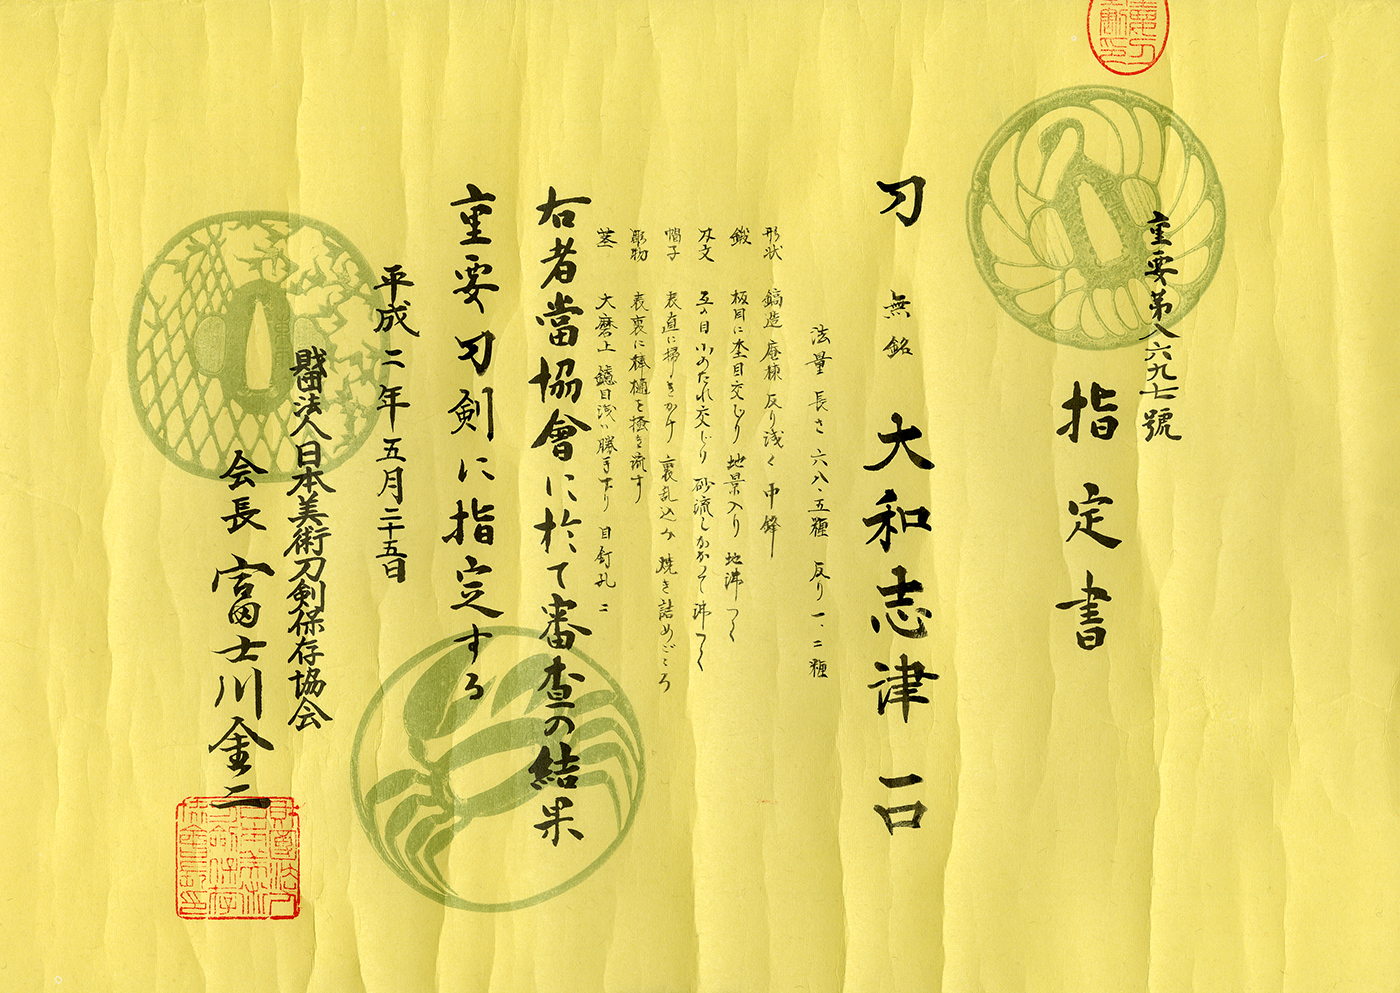 重要第八六九七號
指定書
刀 無銘 大和志津 一口
法量 長さ 六八・五糎 反り 一、二糎
形状 鎬造 庵棟 反り浅く 中鋒
鍛 板目に杢目交じり 地景入り 地沸つく
刃文 互の目 小のたれ交じり 砂流しかかって 沸つく
帽子 表直に掃きかけ 裏乱込み 焼き詰めごころ
彫物 表裏に棒樋を掻き流す
茎 大磨上 鑢目浅い勝手下り 目釘孔 二
右者當協會に於て審査の結果
重要刀剣に指定する
平成二年五月二十五日
財団法人日本美術刀剣保存協会
会長 富士川金二